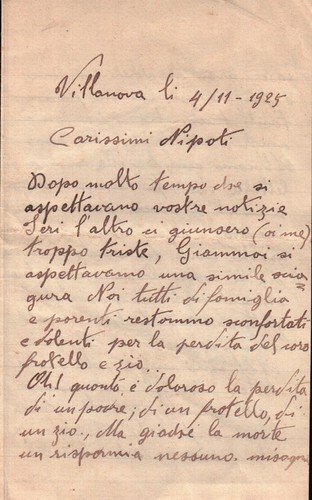 Villanova li 4/11-1925
Carissimi Nipoti
Dopo molto tempo che si
aspettavano vostre notizie
Ieri l'altro ci giunsero (oime)
troppo triste, Giammai si
aspettavamo una simile scia=
gura Noi tutti di famiglia
e parenti restammo sconfortati
e dolenti per la perdita del caro
fratello e zio..
Oh! quanto è doloroso la perdita
di un padre; di un fratello, di
un zio., Ma giachè la morte
un risparmia nessuno.